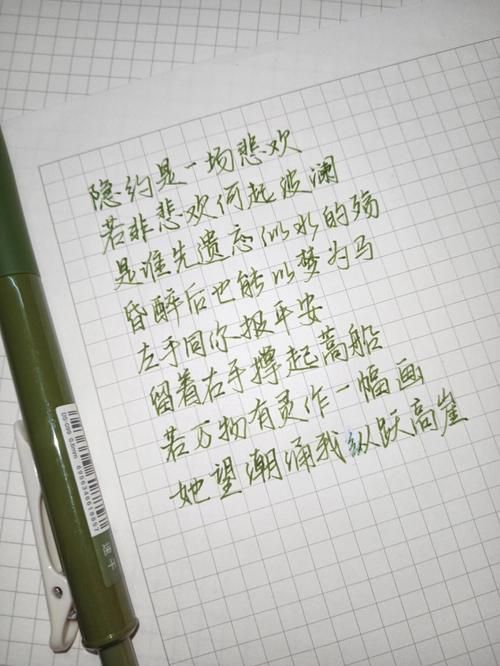 隐约是一场悲欢
若非悲欢何起波澜
是谁先遗忘似水的殇
昏醉后也能以梦为马
左手同你报平安
留着右手撑起蒿船
若万物有灵作一幅画
她望潮涌我纵跃高崖
速干